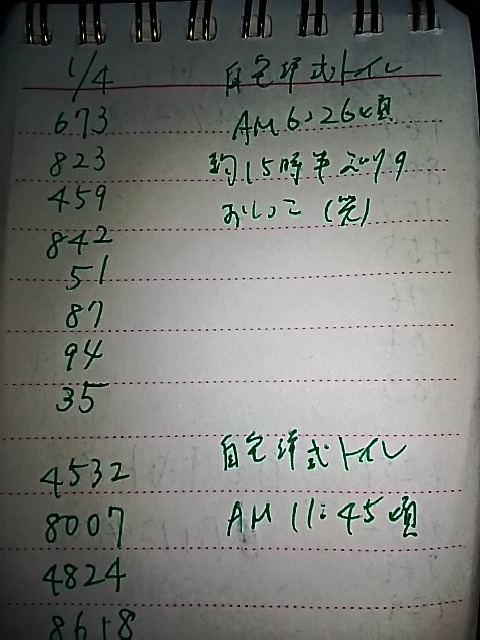 1/4 自宅洋式トイレ
673 AM6:26頃
823 約15時半ぶりの
459 おしっこ(笑)
842
51
87
94
35
4532 自宅洋式トイレ
8007 AM11:45頃
4824
8618